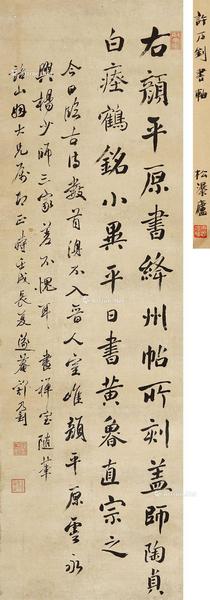 右顏平原書絳州帖所刻蓋師陶貞
白瘞鶴銘小異平日書黃魯直宗之
今日臨古詩數首得不入晉人室唯顏平原雲永
興楊少師三家差不愧耳 書禪室隨筆
大兄屬即正 時壬戌長夏
許乃釗書帖 松瀑廬